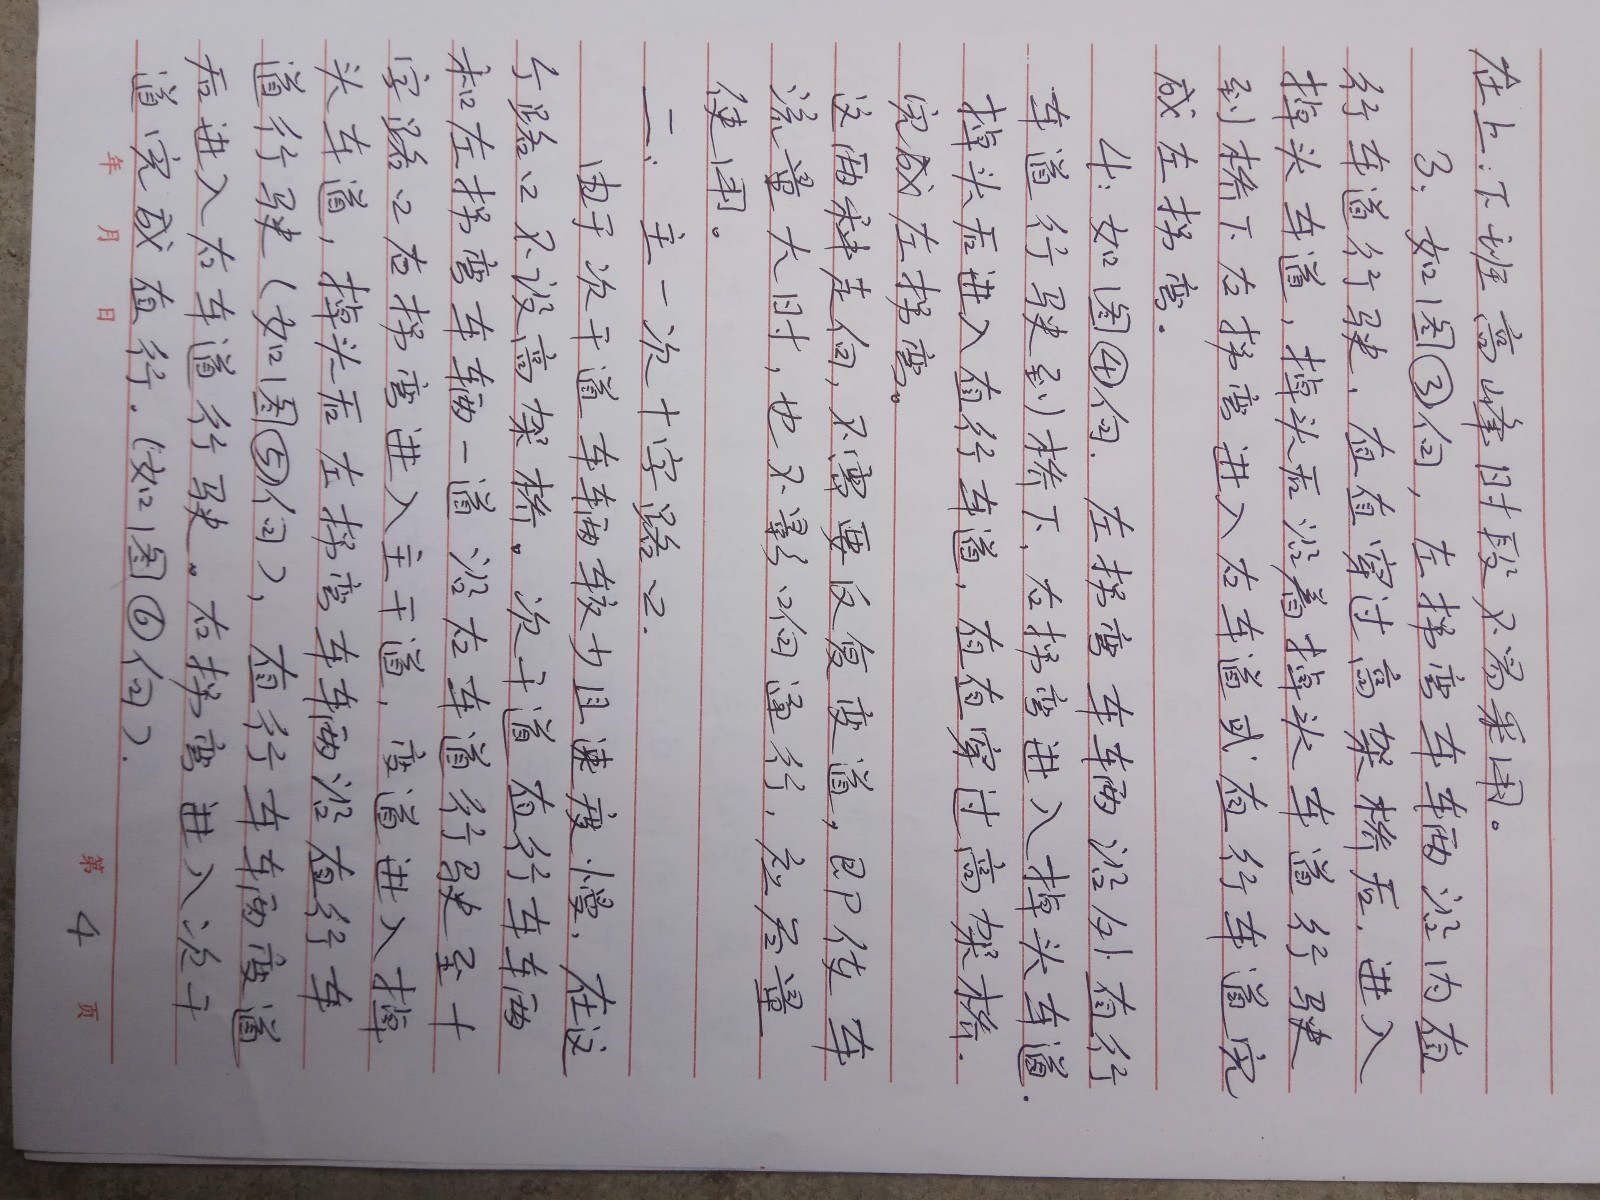 在上、下班高峰时段不易采用。
3：如图③向，左拐弯车车辆沿内直
行车道行驶．直直穿过高架桥后．进入
掉头车道，掉头后沿着掉头车道行驶
到桥下右拐弯进入右车道或直行车道完
成左拐弯．
4：如图④向．左拐弯车车辆沿外直行
车道行驶到桥下．右拐弯进入掉头车道．
掉头后进入直行车道，直直穿过高架桥．
完成左拐弯。
这两种走向，不需要反复变道，即使车
流量大时，也不影响通行，应尽量
使用。
二、主一次十字路口．
由于次干道车车辆较少且速度慢，在这
个路口不设高架桥。次干道直行车车辆
和左拐弯车车辆一道沿右车道行驶至十
字路口右拐弯进入主干道．变道进入掉
头车道，掉头后左拐弯车车辆沿直行车
道行驶（如图⑤向），直行车车辆变道
后进入右车道行驶。右拐弯进入次干
道完成直行．（如图⑥向）．
年 月 日
第 4 页